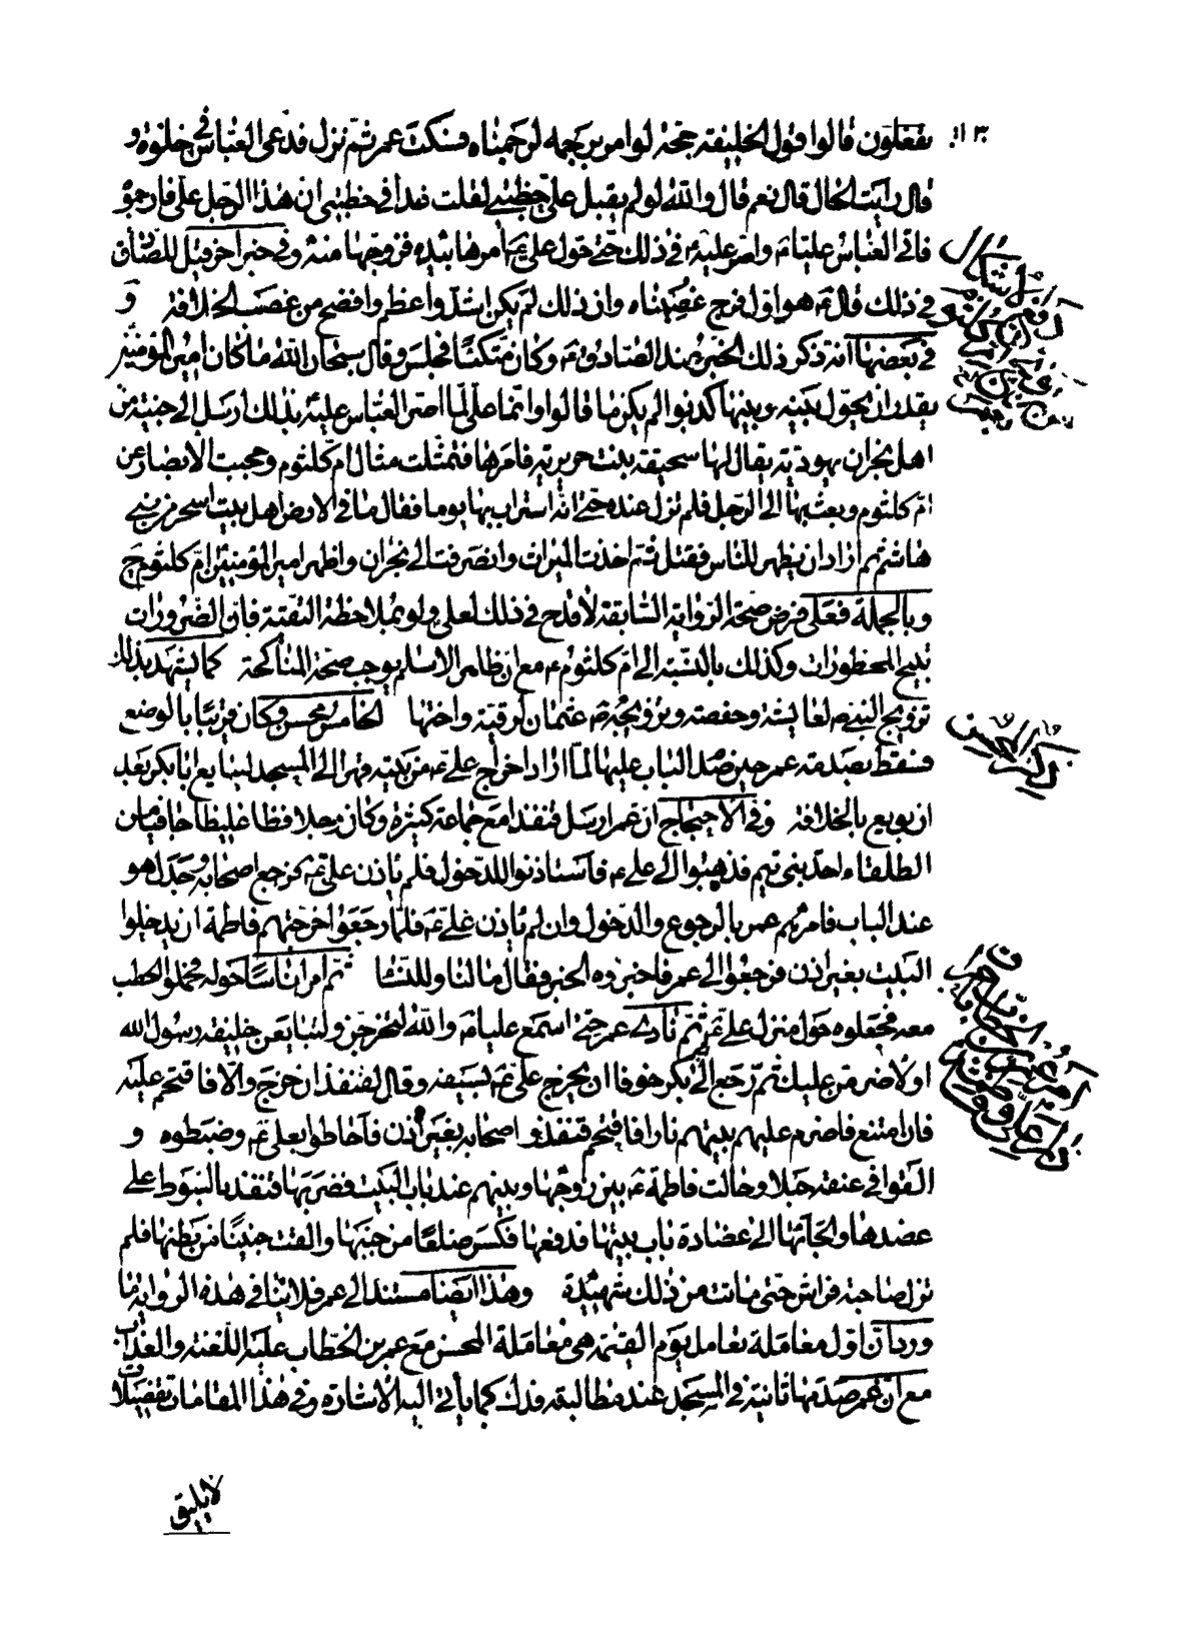 يفعلون قالوا قول الخليفة حجة لو امر برجمه لرجمناه فسكت عمر ثم نزل فدعى العباس في خلوة و
قال رايت الحال قال نعم قال والله لو لم يقبل علي خطبتي لقلت غدا في خطبتي ان هذا الرجل علي فارجموه
فاتى العباس عليا ع واصر عليه في ذلك حتى حول علي ع امرها بيده فزوجها منه وفي خبر اخر قيل للصادق
في ذلك قال ع هو اول فرج غصبناه وان ذلك لم يكن اشد واعظم وافضح من غصب الخلافة و
في بعضها انه ذكر ذلك الخبر عند الصادق ع وكان متكئا فجلس وقال سبحان الله ما كان امير المؤمنين
يقدر ان يحول بينه وبينها كذبوا لم يكن ما قالوا وانما علي لما اصر العباس عليه بذلك ارسل الى جنية من
اهل نجران يهودية يقال لها سحيقة بنت حريرية فامرها فتمثلت مثال ام كلثوم وحجبت الابصار عن
ام كلثوم وبعث بها الى الرجل فلم تزل عنده حتى انه استراب بها يوما فقال ما في الارض اهل بيت اسحر من بني
هاشم ثم اراد ان يظهر للناس فقتل ثم اخذت الميراث وانصرفت الى نجران واظهر امير المؤمنين ام كلثوم ع
وبالجملة فعلى فرض صحة الرواية السابقة لا قدح في ذلك لعلي ولو بملاحظة التقية فان الضرورات
تبيح المحظورات وكذلك بالنسبة الى ام كلثوم ع مع ان ظاهر الاسلم يوجب صحة المناكحة كما يشهد بذلك
تزويج النبي ص لعايشة وحفصة وتزويجه ص عثمان لرقية واختها الخامس محسن وكان قريبا بالوضع
فسقط بصدمة عمر حين صد الباب عليها لما اراد اخراج علي ع من بيته قهرا الى المسجد ليبايع ابا بكر بعد
ان بويع بالخلافة وفي الاحتجاج ان عمر ارسل قنفذا مع جماعة كثيرة وكان رجلا فظا غليظا جافيا من
الطلقاء احد بني تيم فذهبوا الى علي ع فاستاذنوا للدخول فلم ياذن علي ع فرجع اصحابه وجدل هو
عند الباب فامرهم عمر بالرجوع والدخول وان لم ياذن علي ع فلما رجعوا اخرجتهم فاطمة ان يدخلوا
البيت بغير اذن فرجعوا الى عمر فاخبروه الخبر فقال ما لنا وللنسا ثم امر اناسا حوله فحملوا الحطب
معه فجعلوه حول منزل علي ع ثم نادى عمر حتى اسمع عليا ع والله لتخرجن ولتبايعن خليفة رسول الله
او لاضرمن عليك ثم رجع الى ابي بكر خوفا ان يخرج علي ع بسيفه وقال لقنفذ ان خرج والا فاقتحم عليه
فان امتنع فاضرم عليهم بيتهم نارا فاقتحم قنفذ و اصحابه بغير اذن فاحاطوا بعلي ع وضبطوه و
القوا في عنقه حبلا وحالت فاطمة ع بين زوجها وبينهم عند باب البيت فضربها قنفذ بالسوط على
عضدها والجأتها الى عضادة باب بيتها فدفعها فكسر ضلعا من جنبها والقت جنينا من بطنها فلم
تزل صاحبة فراش حتى ماتت من ذلك شهيدة وهذا ايضا مستند الى عمر فلا ينافي هذه الرواية ما
ورد ان اول معاملة تعامل يوم القيمة هي معاملة المحسن مع عمر بن الخطاب عليه اللعنة والعذاب
مع ان عمر صدمها ثانية في المسجد عند مطالبة فدك كما يأتي اليه الاشارة وفي هذا المقامات تفصيلات
لا يليق
ذكر المحسن